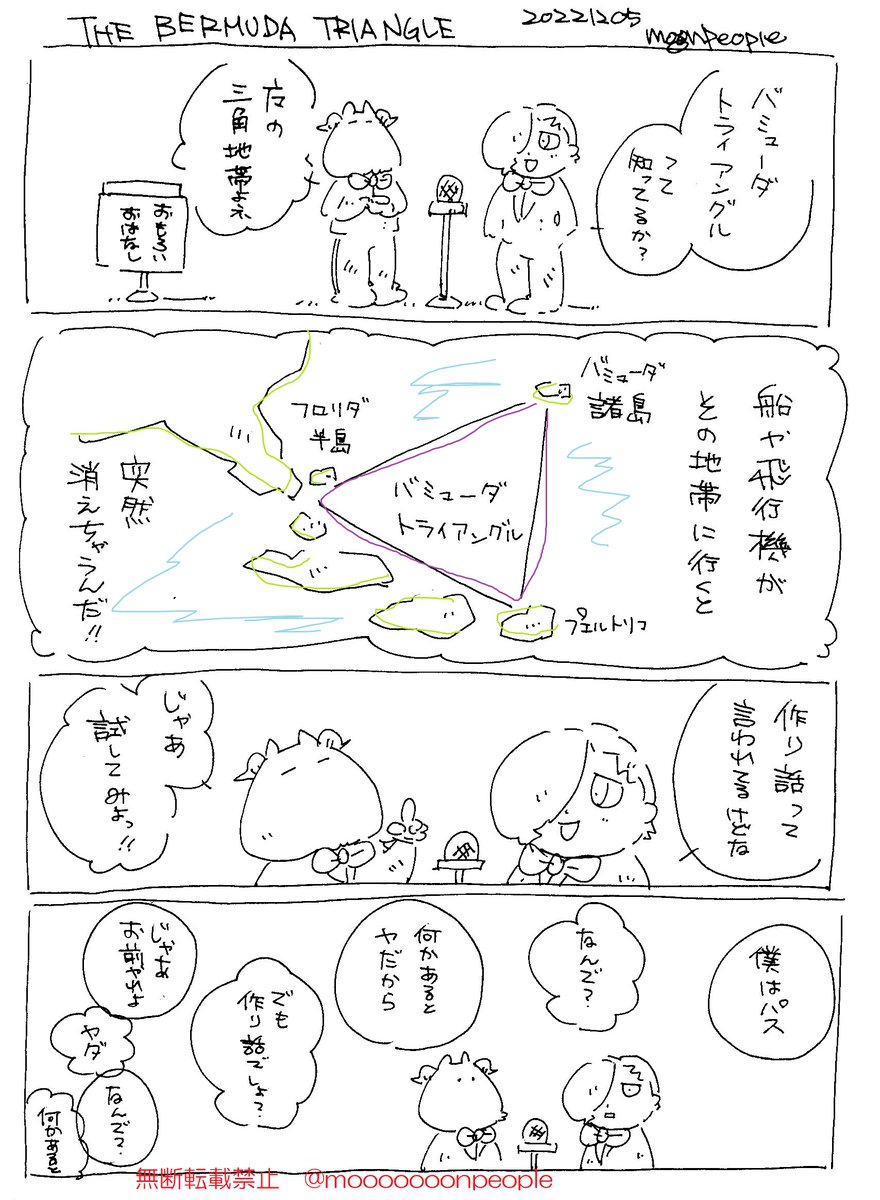 THE BERMUDA TRIANGLE
20221205
moonpeople
バミューダ
トライアングル
って
知ってるか?
魔の
三角地帯よネ
おもろい
おはなし
船や飛行機が
その地帯に行くと
バミューダ
諸島
フロリダ
半島
バミューダ
トライアングル
プエルトリコ
突然
消えちゃうんだ!!
作り話って
言われてるけどな
じゃあ
試してみよっ!!
僕はパス
なんで?
何かあると
ヤだから
でも
作り話でしょ?
じゃあ
お前やれよ
ヤダ
なんで?
何かあると
無断転載禁止 @mooooooonpeople